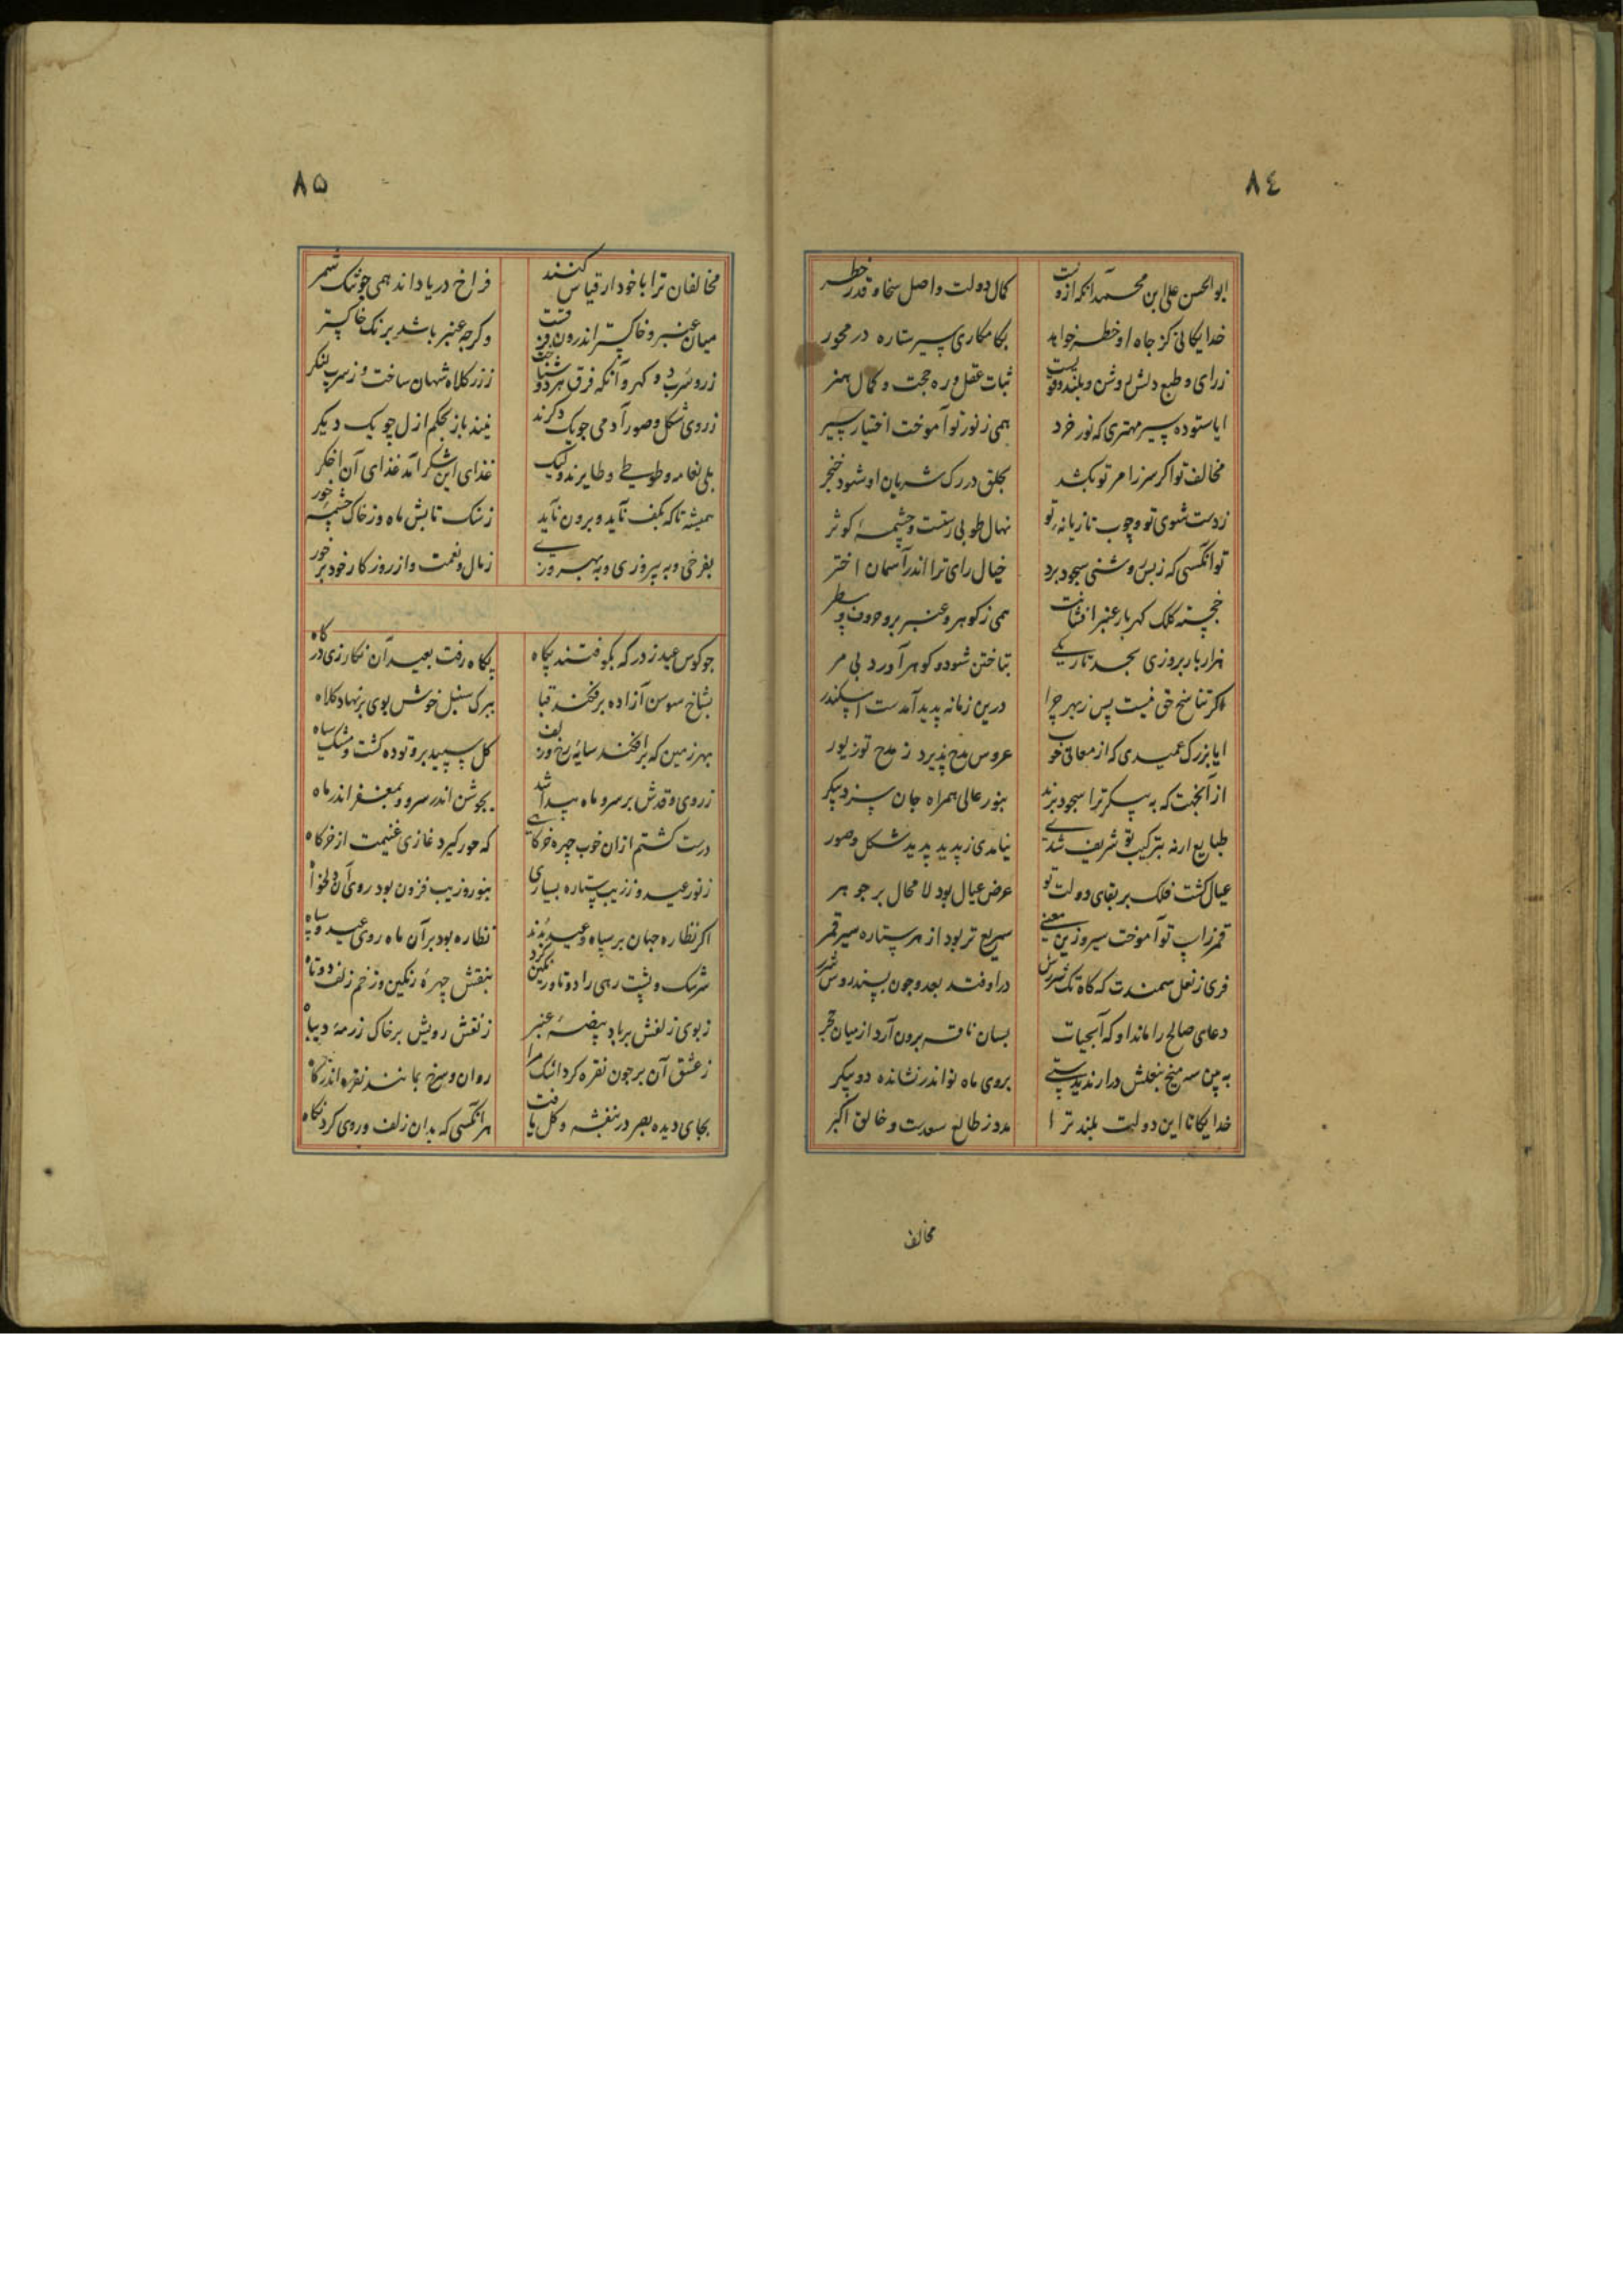 ٨٤
ابوالحسن علی ابن محمد آنکه ازوست کمال دولت و اصل سخا و قدر خطر
خدایکانی کز جاه او خطر خواهد بکامکاری سپر ستاره در محور
زرای و طبع دلش روشن و بلند وقویست ثبات عقل وره حجت و کمال هنر
ایا ستوده سپر مهتری که نور خرد همی ز نور تو آموخت اختیار سپر
مخالف تو اکر سر زامر تو بکشد بحلق در رک شریان او شود خنجر
زدست شوی تو و چوب تازیانه تو نهال طوبی رست و چشمهٔ کوثر
تو آنکسی که زبس روشنی سجود برد خیال رای ترا اندر آسمان اختر
خجسته کلک کهربار عنبر افشانت همی ز کوهر و عنبر برو حروف و سطر
هزار بار بروزی بحد تاریکی بتاختن شود و کوهر آورد بی مر
اکر تناسخ حق نیست پس زبهر چرا درین زمانه پدید آمدست اسکندر
ایا بزرک عمیدی که از معانی خوب عروس مدح پذیرد ز مدح تو زیور
از آنجهت که به پیکر ترا سجود برند بنور عالی همراه جان سزد پیکر
طبایع ارنه بترکیب تو شریف شدی نیامدی ز پدید پدید شکل و صور
عیال کشت فلک بر بقای دولت تو عرض عیال بود لا محال بر جوهر
قمر زاسپ تو آموخت سیر وزین معنی سریع تر بود از هر ستاره سیر قمر
فری ز نعل سمندت که کاه تک شررش دراوفتد بعدو چون سپندروس شرر
دعای صالح را ماند او که آبحیات بسان ناقه برون آرد از میان حجر
به بین سه میخ بنعلش درار ندیدستی بروی ماه نو اندر نشانده دو پیکر
خدایکانا این دولت بلند ترا مدد ز طالع سعدست و خالق اکبر
مخالف
٨٥
مخالفان ترا با خود ار قیاس کنند فراخ دریا داند همی چوشک شمر
میان عنبر و خاکستر اندرون فرقست وکرچه عنبر باشد برنک خاکستر
زر و سرب دو کهر و آنکه فرق هردو شناخت ززر کلاه شهان ساخت و زسرب لنکر
ز روی شکل و صور آدمی چو یک دکرند نیند باز بحکم ازل چو یک دیکر
بلی نعامه و طوطی و طایرند ولیک غذای این شکر آمد غذای آن اخکر
همیشه تا که بکف نآید و برون نآید زسنک تابش ماه و زخاک چشمهٔ خور
بفرخی و به پیروزی و به بهروزی زمال و نعمت و از روزکار خود برخور
چو کوس عید ز درکه بکوفتند پکاه پکاه رفت بعید آن نکار زی درکاه
بشاخ سوسن آزاده برفکند قبا ببرک سنبل خوش بوی برنهاد کلاه
بهر زمین که برافکند سایه رخ وزلف کل سپید برو توده کشت و مشک سیاه
زروی و قدش بر سرو ماه پیدا شد بجوشن اندر سرو و بمغفر اندر ماه
درست کشتم ازان خوب چهره خرکاهی که حور کیرد غازی غنیمت از خرکاه
زنور عید و ززیب ستاره بسیاری بنور وزیب فزون بود روی آن دلخواه
اکر نظاره جهان بر سپاه و عید بدند نظاره بود برآن ماه روی عید و سپاه
سرشک و پشت رهی را دوتا و رنکین کرد بنقش چهرهٔ رنکین و زخم زلف دوتاه
زبوی زلفش بر باد بیضهٔ عنبر زنقش رویش بر خاک رزمهٔ دیباه
زعشق آن بر چون نقره کرد اشک مرا روان و سرخ بمانند نقره اندر کاه
بجای دیده بصر در بنفشه و کل یافت هرآنکسی که بدان زلف و روی کرد نکاه